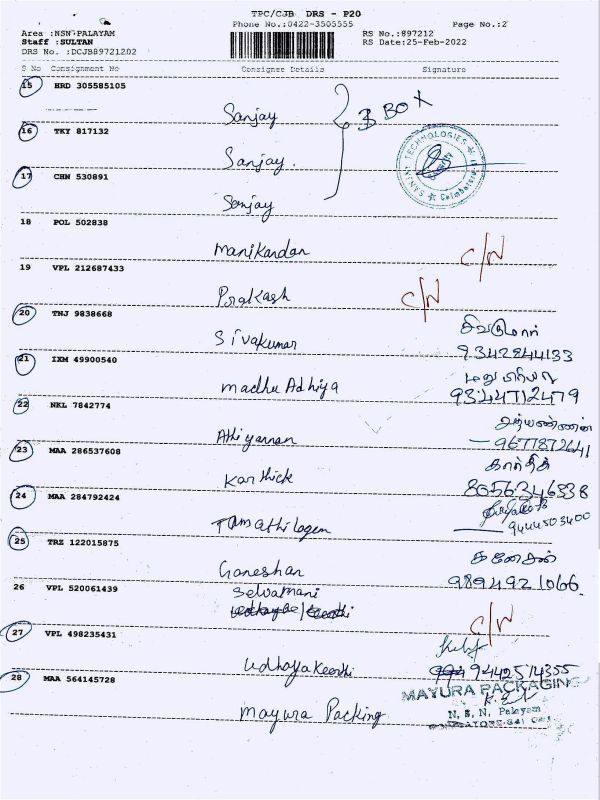 TPC/CJB DRS - P20
Phone No.:0422-3505555
Page No.:2
Area :NSN-PALAYAM
Staff :SULTAN
DRS No. :DCJB89721202
RS No.:897212
RS Date:25-Feb-2022
S No Consignment No Consignee Details Signature
15 HRD 305585105
Sanjay
3 BOX
16 TKY 817132
Sanjay.
TECHNOLOGIES
Coimbatore
17 CHN 530891
Sanjay
18 POL 502838
Manikandan C/N
19 VPL 212687433
Prakash C/N
20 TNJ 9838668
Sivakumar
சிவகுமார்
9342244133
21 IXM 49900540
Madhu Adhiya
9344712479
22 NKL 7842774
Athiyannan
9677872641
23 MAA 286537608
Karthick
கார்த்திக்
8056346838
24 MAA 284792424
9444503400
25 TRZ 122015875
Ganeshan
கணேசன்
9894921066.
26 VPL 520061439
Selvamani
C/N
27 VPL 498235431
Udhaya Keerthi
9442514355
28 MAA 564145728
Mayura Packing
MAYURA PACKAGING
N. S. N. Palayam